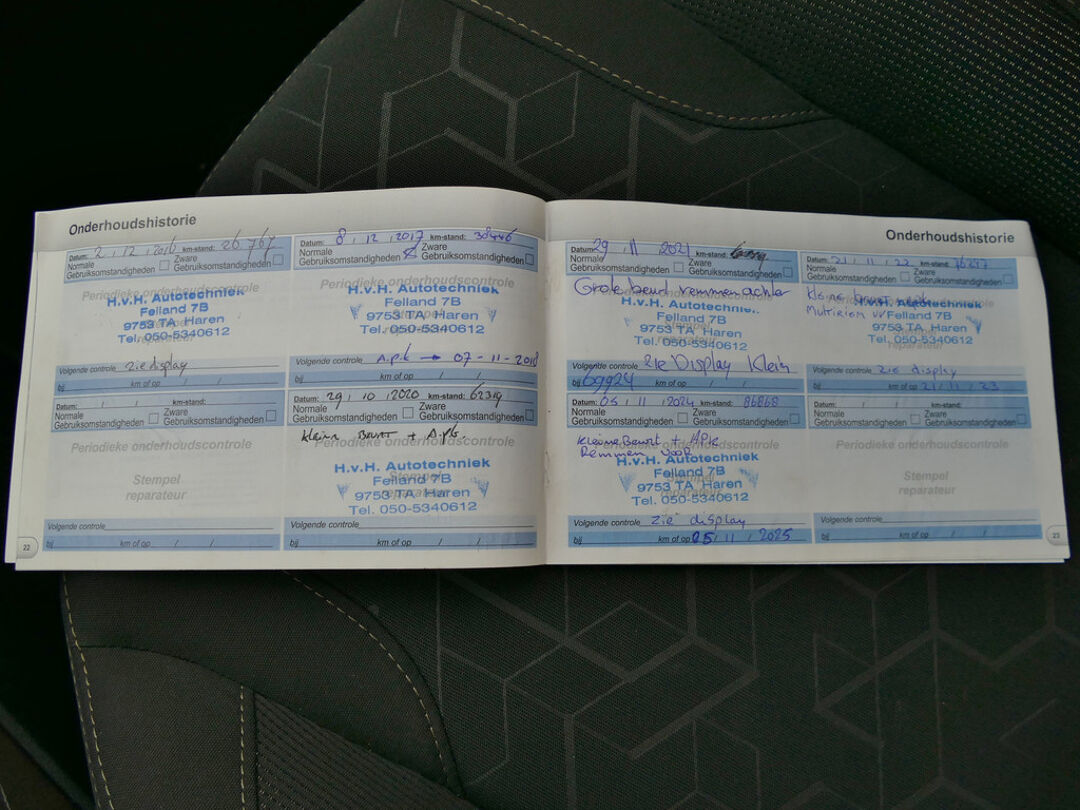 Onderhoudshistorie
Datum: 2 , 12 , 2016 km-stand: 26 767
Normale Zware
Gebruiksomstandigheden Gebruiksomstandigheden
Periodieke onderhoudscontrole
H.v.H. Autotechniek
Felland 7B
9753 TA Haren
Tel. 050-5340612
Volgende controle zie display
bij km of op / /
Datum: 8 , 12 , 2017 km-stand: 38446
Normale Zware
Gebruiksomstandigheden Gebruiksomstandigheden
Periodieke onderhoudscontrole
H.v.H. Autotechniek
Felland 7B
9753 TA Haren
Tel. 050-5340612
Volgende controle A.p.k → 07-11-2018
bij km of op / /
Datum: / / km-stand:
Normale Zware
Gebruiksomstandigheden Gebruiksomstandigheden
Periodieke onderhoudscontrole
Stempel
reparateur
Volgende controle
bij km of op / /
Datum: 29 , 10 , 2020 km-stand: 62319
Normale Zware
Gebruiksomstandigheden Gebruiksomstandigheden
Kleine Beurt + A.p.k.
Periodieke onderhoudscontrole
Stempel
reparateur
H.v.H. Autotechniek
Felland 7B
9753 TA Haren
Tel. 050-5340612
Volgende controle
bij km of op / /
22
Onderhoudshistorie
Datum: 29 , 11 , 2021 km-stand:
Normale Zware
Gebruiksomstandigheden Gebruiksomstandigheden
Grote beurt remmen achter
H.v.H. Autotechniek
Felland 7B
9753 TA Haren
Tel. 050-5340612
Volgende controle zie Display Klein
bij 69924 km of op / /
Datum: 21 , 11 , 22 km-stand:
Normale Zware
Gebruiksomstandigheden Gebruiksomstandigheden
Kleine beurt
Multiriem
H.v.H. Autotechniek
Felland 7B
9753 TA Haren
Tel. 050-5340612
Volgende controle zie display
bij km of op 21 / 11 / 23
Datum: 05 , 11 , 2024 km-stand: 86868
Normale Zware
Gebruiksomstandigheden Gebruiksomstandigheden
Kleine Beurt + APK
Remmen voor
H.v.H. Autotechniek
Felland 7B
9753 TA Haren
Tel. 050-5340612
Volgende controle zie display
bij km of op 05 , 11 , 2025
Datum: / / km-stand:
Normale Zware
Gebruiksomstandigheden Gebruiksomstandigheden
Periodieke onderhoudscontrole
Stempel
reparateur
Volgende controle
bij km of op / /
23